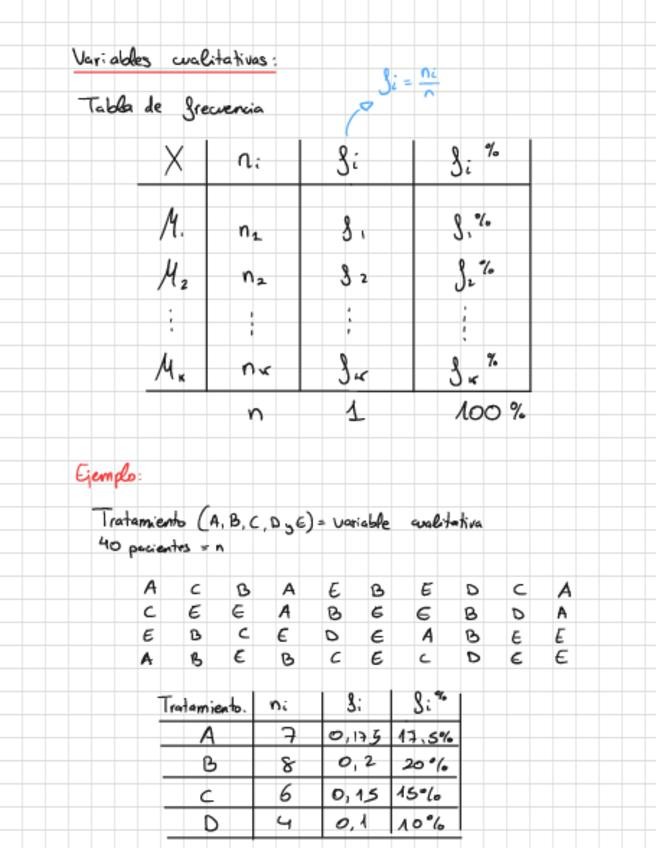 Variables cualitativas:
fi = ni/n
Tabla de frecuencia
X ni fi fi %
M1 n1 f1 f1 %
M2 n2 f2 f2 %
⋮ ⋮ ⋮ ⋮
Mk nk fk fk %
n 1 100 %
Ejemplo:
Tratamiento (A, B, C, D y E) = variable cualitativa
40 pacientes = n
A C B A E B E D C A
C E E A B E E B D A
E B C E D E A B E E
A B E B C E C D E E
Tratamiento. ni fi fi %
A 7 0,175 17,5%
B 8 0,2 20%
C 6 0,15 15%
D 4 0,1 10%